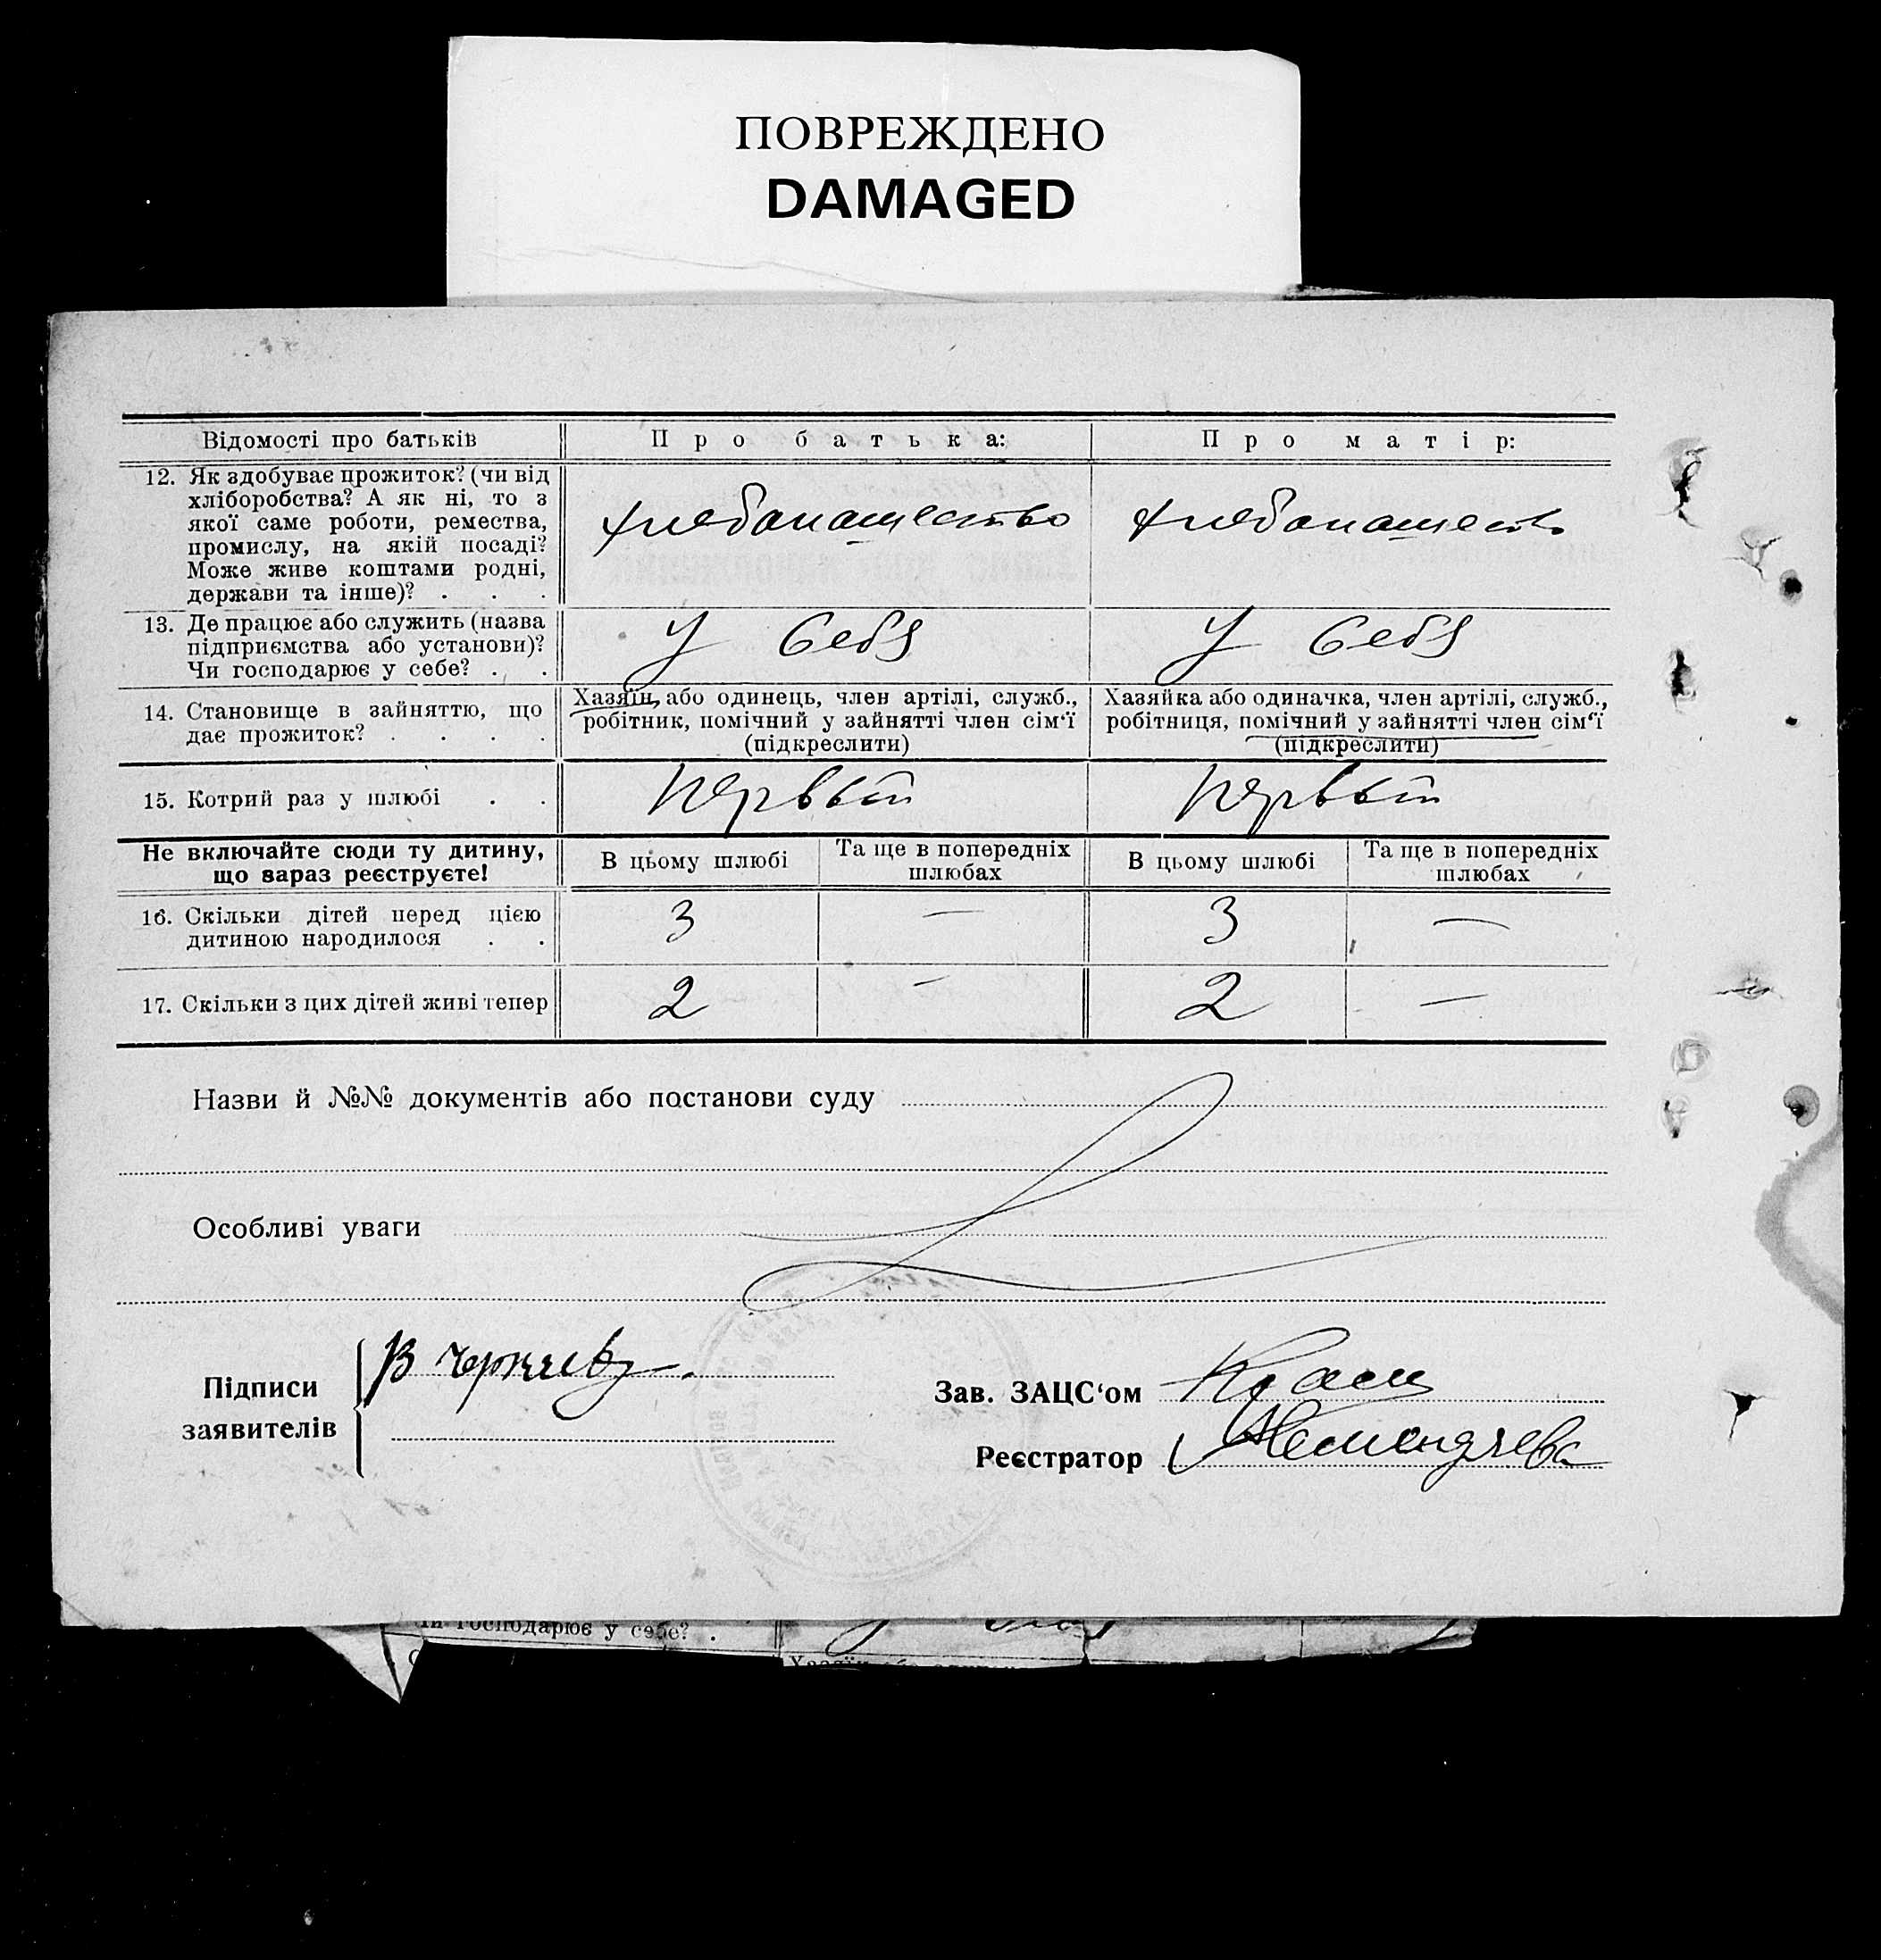 ПОВРЕЖДЕНО
DAMAGED
Відомості про батьків
Про батька:
Про матір:
12. Як здобуває прожиток? (чи від
хліборобства? А як ні, то з
якої саме роботи, ремества,
промислу, на якій посаді?
Може живе коштами родні,
держави та інше)? . . .
хлебопашество
хлебопашество
13. Де працює або служить (назва
підприємства або установи)?
Чи господарює у себе? . .
У себя
У себя
14. Становище в зайняттю, що
дає прожиток? . . . .
Хазяїн, або одинець, член артілі, служб.,
робітник, помічний у зайнятті член сім'ї
(підкреслити)
Хазяйка або одиначка, член артілі, служб.,
робітниця, помічний у зайнятті член сім'ї
(підкреслити)
15. Котрий раз у шлюбі . .
первый
первый
Не включайте сюди ту дитину,
що зараз реєструєте!
В цьому шлюбі
Та ще в попередніх
шлюбах
В цьому шлюбі
Та ще в попередніх
шлюбах
16. Скільки дітей перед цією
дитиною народилося . .
3
—
3
—
17. Скільки з цих дітей живі тепер
2
—
2
—
Назви й №№ документів або постанови суду
Особливі уваги
Підписи
заявителів
В
Зав. ЗАЦС'ом
Реєстратор
Чи господарює у себе? .